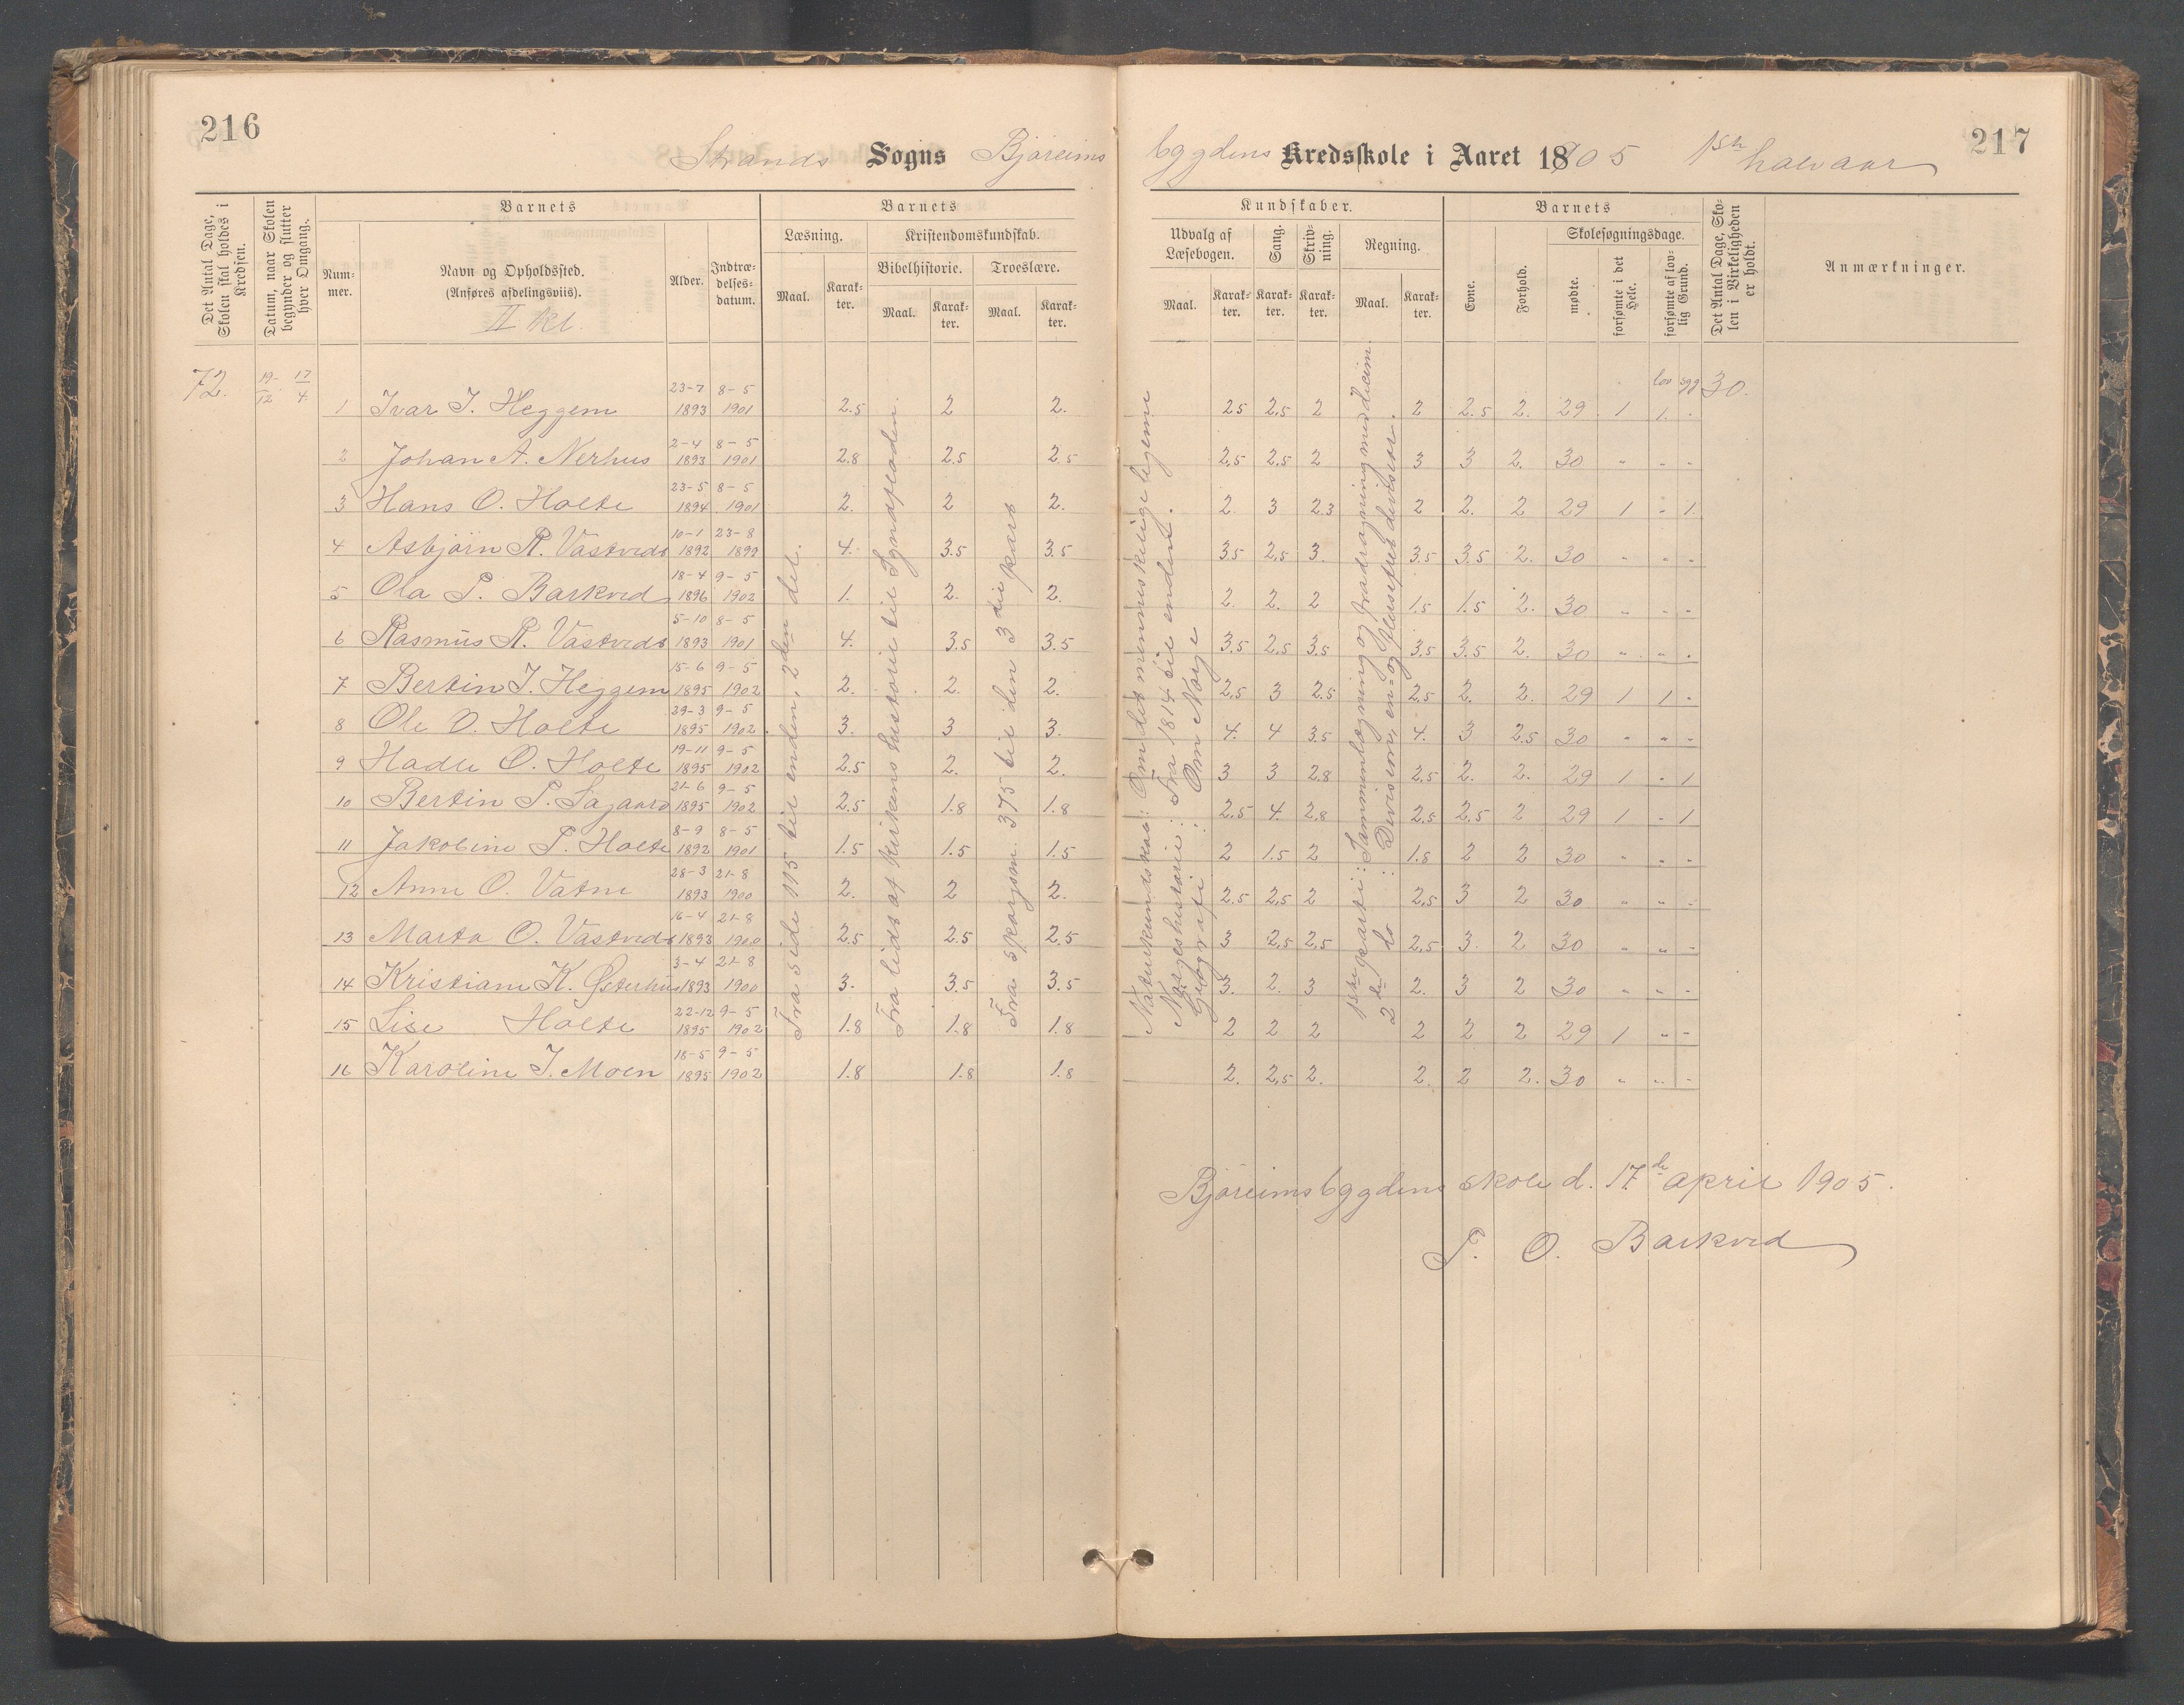 216
217
Strands Sogns Bjøreims bygdens Kredsskole i Aaret 1905 1ste halvaar
Det Antal Dage, Skolen skal holdes i Kredsen.
Datum, naar Skolen begynder og slutter hver Omgang.
Barnets
Nummer.
Navn og Opholdssted.
(Anføres afdelingsviis).
II kl.
Alder.
Indtrædelses-datum.
Barnets
Læsning.
Maal.
Karakter.
Kristendomskundskab.
Bibelhistorie.
Maal.
Karakter.
Troeslære.
Maal.
Karakter.
Kundskaber.
Udvalg af Læsebogen.
Maal.
Karakter.
Sang.
Karakter.
Skrivning.
Karakter.
Regning.
Maal.
Karakter.
Barnets
Evne.
Forhold.
Skolesøgningsdage.
mødte.
forsømte i det Hele.
forsømte af lovlig Grund.
Det Antal Dage, Skolen i Virkeligheden er holdt.
Anmærkninger.
72. 19-/12. 17/4. lov syg 30.
1 Ivar I. Heggem 23-7 1893 8-5 1901 2.5 2 2. 25 2,5 2 2 2.5 2. 29 1 1. -
2 Johan A. Nerhus 2-4 1893 8-5 1901 2.8 2.5 2.5 2,5 2,5 2 3 3 2. 30 " - -
3 Hans O. Holte 23-5 1894 8-5 1901 2. 2 2. 2 3 2.3 2 2. 2 29 1 - 1
4 Asbjørn R. Vastveds 10-1 1892 23-8 1899 4. 3.5 3.5 3.5 2,5 3. 3.5 3.5 2. 30 " - -
5 Ola P. Barkved 18-4 1896 9-5 1902 1. 2. 2. 2. 2. 2 1.5 1.5 2. 30 " - -
6 Rasmus R. Vastveds 5-10 1893 8-5 1901 4. 3.5 3.5 3.5 2,5 3.5 3.5 3.5 2. 30 " - -
7 Bertin I. Heggem 15-6 1895 9-5 1902 2. 2. 2. 2,5 3 2.5 2.5 2. 2. 29 1 1 -
8 Ole O. Holte 29-3 1895 9-5 1902 3. 3 3. 4. 4 3.5 4. 3 2.5 30 " " -
9 Hadle O. Holte 19-11 1895 9-5 1902 2.5 2. 2. 3 3 2.8 2,5 2. 2. 29 1 - 1
10 Bertin P. Sagaard 21-6 1895 9-5 1902 2.5 1.8 1.8 2.5 4. 2.8 2.5 2.5 2 29 1 - 1
11 Jakobine P. Holte 8-9 1892 8-5 1901 1.5 1.5 1.5 2 1.5 2 1.5 2 2 30 " - -
12 Anne O. Vatne 28-3 1893 21-8 1900 2. 2 2. 2.5 2,5 2 2,5 3 2 30 " " -
13 Marta O. Vastveds 16-4 1893 21-8 1900 2.5 2.5 2,5 3 2,5 2,5 2,5 3. 2 30 " " -
14 Kristiane K. Østerhus 3-4 1893 21-8 1900 3. 3.5 3.5 3. 2. 3 2. 3 2 30 " " -
15 Lise Holte 22-12 1895 9-5 1902 1.8 1.8 1.8 2 2 2 2 2 2 29 1 " -
16 Karoline I. Moen 18-5 1895 9-5 1902 1.8 1.8 1.8 2. 2,5 2. 2. 2 2. 30 " " -
Fra side 115 til enden, 2den del.
Fra lidt af kirkens historie til Syndfloden.
Fra spørgsm. 375 til den 3die part
Naturkundskab: Om det menneskelige legeme
Norgeshistorie: Fra 1814 til enden.
Geografi: Om Norge
1ste parti: Sammenlægning og fradragning med decim.
2de do: Division, en- og flersifret divisor.
Bjøreimsbygdens skole d. 17de april 1905.
T. O. Barkved